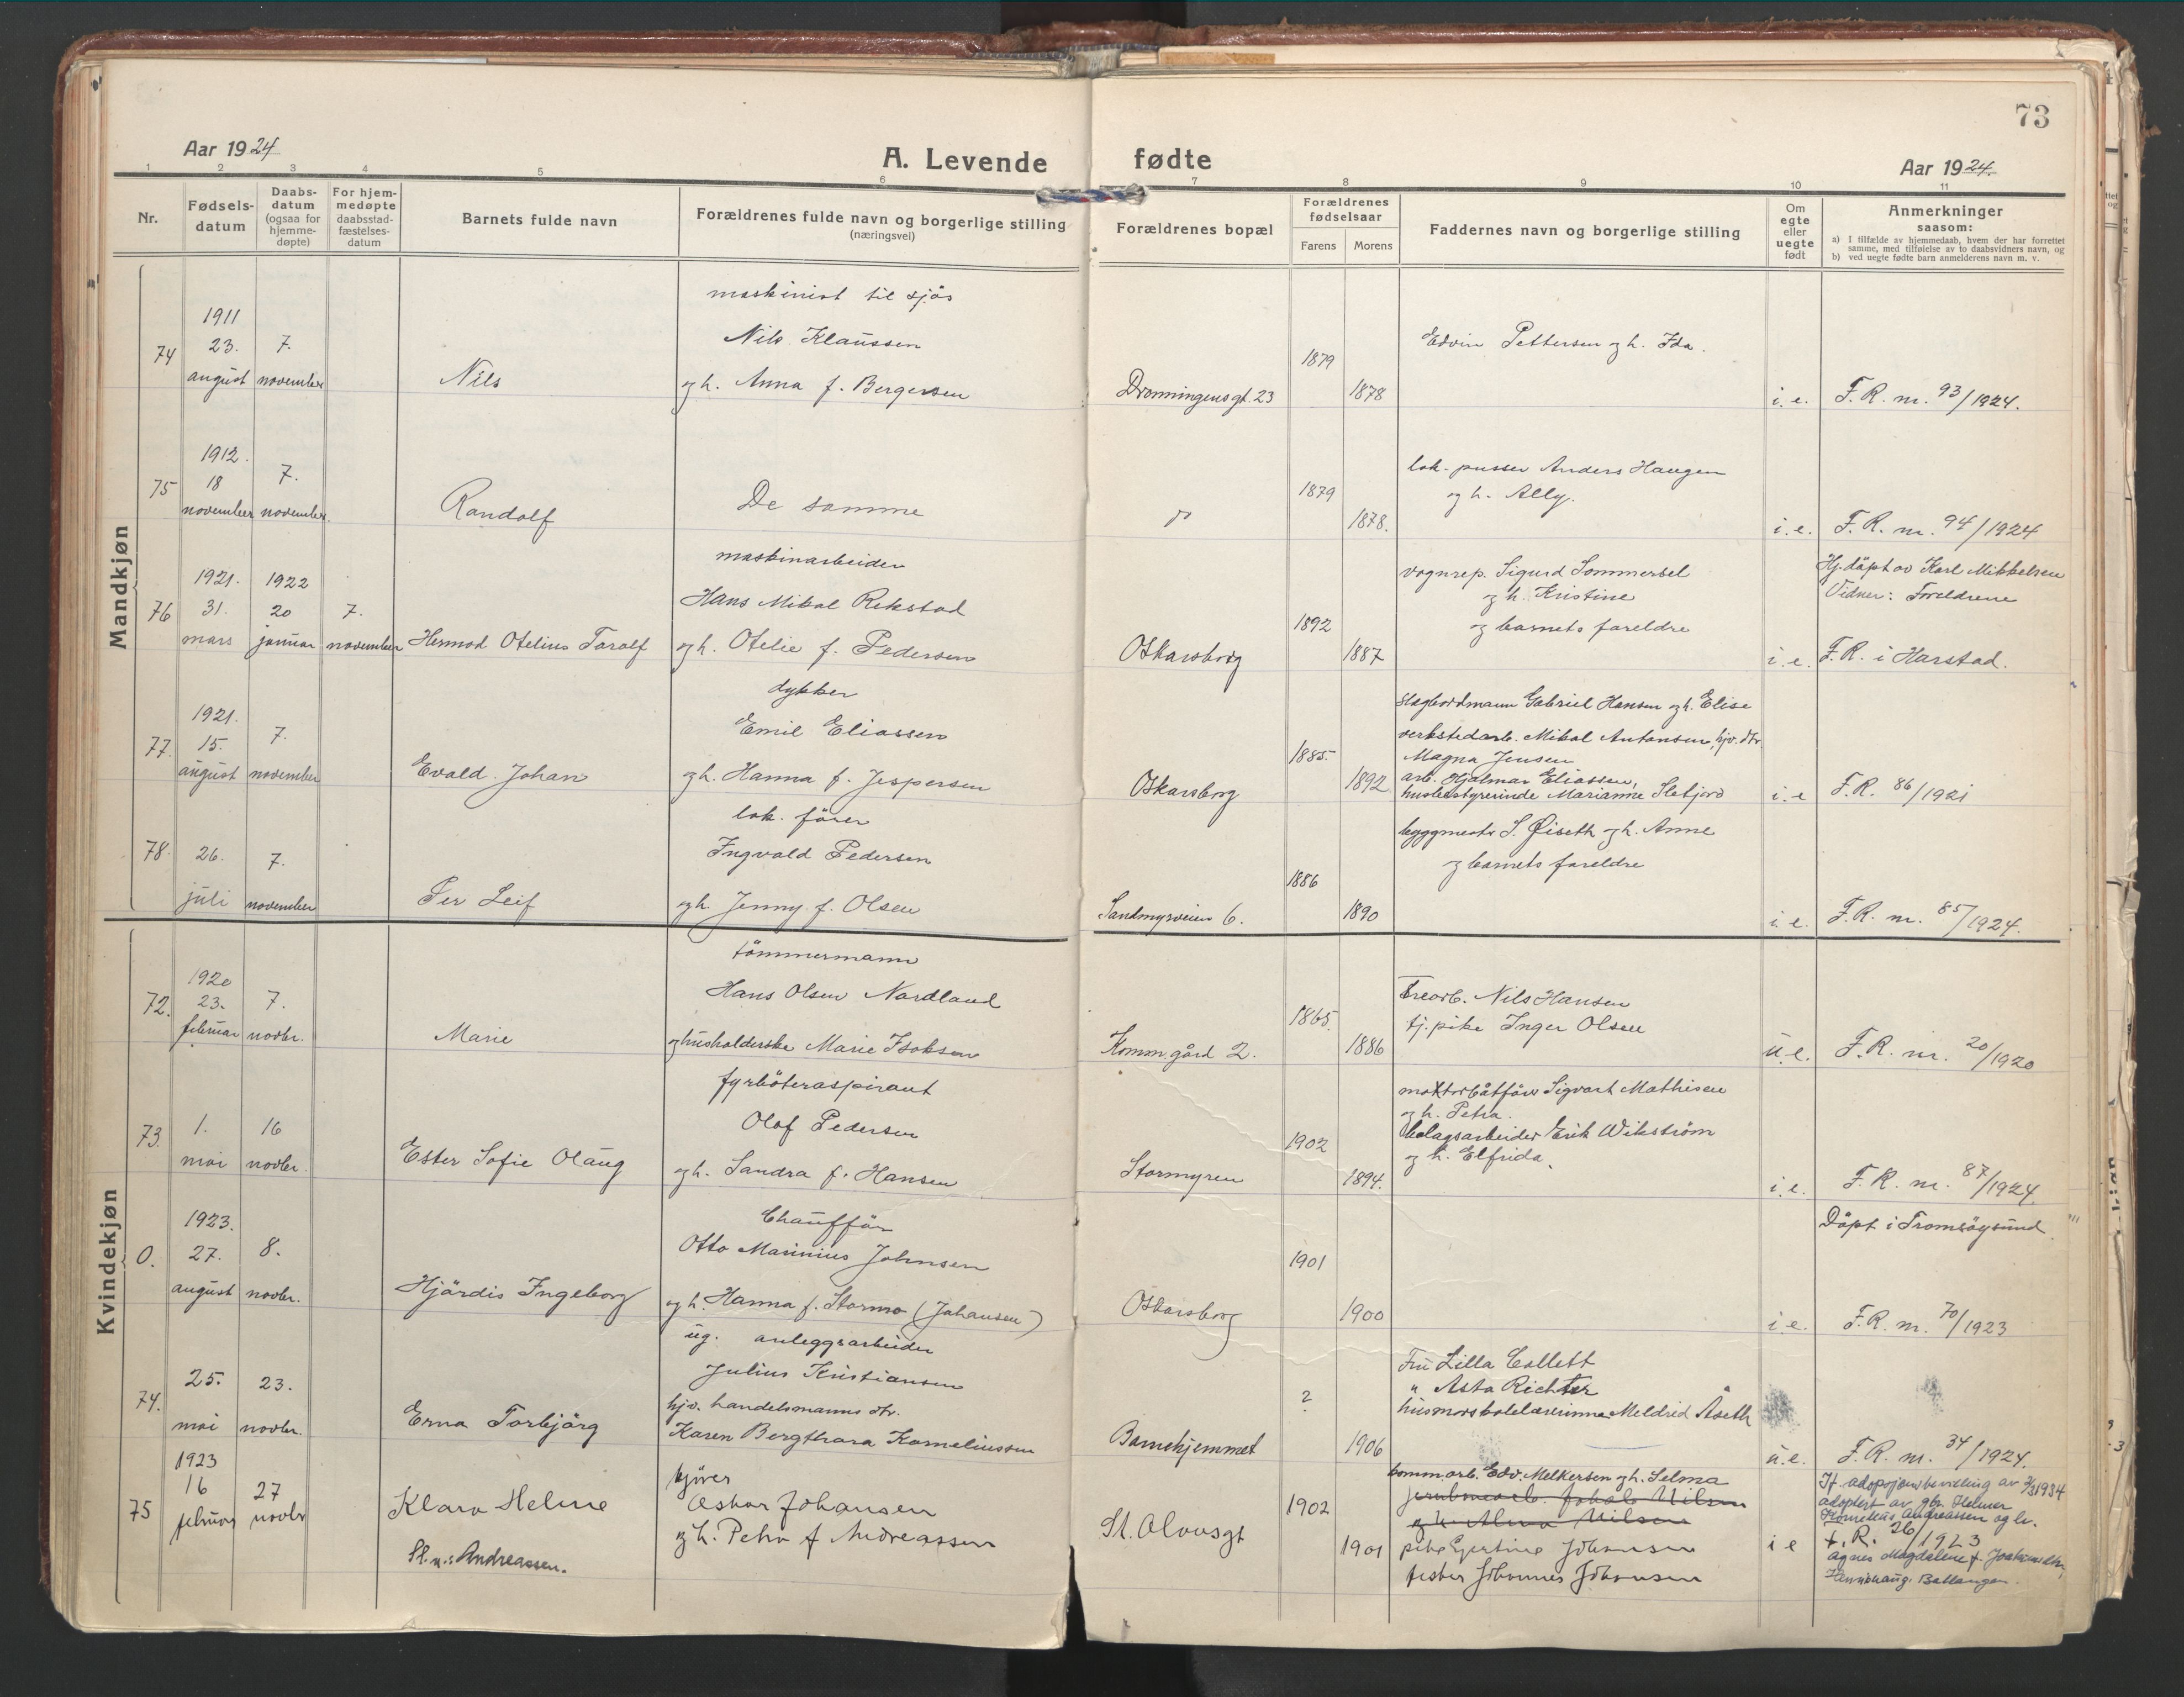 73
Aar 1924
A. Levende fødte
Aar 1924.
1 2 3 4 5 6 7 8 9 10 11
Nr.
Fødsels-
datum
Daabs-
datum
(ogsaa for
hjemme-
døpte)
For hjem-
medøpte
daabsstad-
fæstelses-
datum
Barnets fulde navn
Forældrenes fulde navn og borgerlige stilling
(næringsvei)
Forældrenes bopæl
Forældrenes
fødselsaar
Farens Morens
Faddernes navn og borgerlige stilling
Om
egte
eller
uegte
født
Anmerkninger
saasom:
a) I tilfælde av hjemmedaab, hvem der har forrettet
samme, med tilføielse av to daabsvidners navn, og
b) ved uegte fødte barn anmelderens navn m. v.
Mandkjøn
74
1911
23.
august
7.
november
Nils
maskinist til sjøs
Nils Klaussen
og h. Anna f. Bergersen
Dronningensgt. 23
1879
1878
Edvin Pettersen og h. Ida.
i. e.
F. R. nr. 93/1924.
75
1912.
18
november
7.
november.
Randolf
De samme
1879
1878.
lok. pusser Anders Haugen
og h. Ally.
i. e.
F. R. nr. 94/1924
76
1921.
31.
mars
1922
20
januar
7.
november
Hermod Otelius Toralf
maskinarbeider
Hans Mikal Rekstad
og h. Otelie f. Pedersen
Oskarsborg
1892
1887
vognrep. Sigurd Sommersel
og h. Kristine
og barnets foreldre
i. e.
Hj. döpt av Karl Mikkelsen
Vidner: Foreldrene
F. R. i Harstad.
77.
1921.
15.
august
7.
november
Evald Johan
dykker
Emil Eliassen
og h. Hanna f. Jespersen
Oskarsborg
1885.
1892
Gabriel Hansen og h. Elise
verkstedarb. Mikal Antonsen, hjv. dtr.
Magna Jensen
arb. Hjalmar Eliassen,
Marianne Slebjord
i. e
F. R. 86/1921
78.
26.
juli
7.
november
Per Leif
lok. förer
Ingvald Pedersen
og h. Jenny f. Olsen
Sandmyrveien 6.
1886
1890
byggmester S. Øiseth og h. Anne
og barnets foreldre
i. e.
F. R. nr. 85/1924.
Kvindekjøn
72.
1920
23.
februar
7.
novbr.
Marie
tömmermann
Hans Olsen Nordland
og husholderske Marie Isaksen
Komm. gård 2.
1865.
1886
Trearb. Nils Hansen
tj. pike Inger Olsen
u. e.
F. R. nr. 20/1920
73.
1.
mai
16
novbr.
Ester Sofie Olaug
fyrböteraspirant
Olaf Pedersen
og h. Sandra f. Hansen
Stormyren
1902
1894.
Sigvart Mathisen
og h. Petra.
bolagsarbeider Erik Wikström
og h. Elfrida.
i. e.
F. R. nr. 87/1924
0.
1923.
27.
august
8.
novbr.
Hjördis Ingeborg
Chaufför
Otto Marinius Johnsen
og h. Hanna f. Stormo (Johansen)
Oskarsborg
1901
1900
i. e.
Döpt i Tromsöysund.
F. R. nr. 70/1923
74.
25.
mai
23.
novbr.
Erna Torbjörg
ug. anleggsarbeider
Julius Kristiansen
hjv. handelsmanns dtr.
Karen Bergthora Korneliussen
Barnehjemmet
?
1906
Fru Lilla Collett
" Asta Richter
husmorskolelærerinne Meldrid Åseth
u. e.
F. R. nr. 34/1924.
75
1923
16
februar
27
novbr
Klara Helene
Sl. n.: Andreassen.
kjörer
Oskar Johansen
og h. Petra f Andreassen
St. Olavsgt
1902
1901
komm. arb. Edv. Melkersen og h. Selma
jernbanearb. Jakob Nilsen
og h. Nilsen
pike Gjertine Johansen
fisker Johannes Johansen
i e
If. adopsjonsbevilling av 2/3 1934
adoptert av gbr. Helmer
Kornelius Andreassen og h.
F. R. 26/1923
Agnes Magdalene f. Joakimsdtr,
Ballangen.